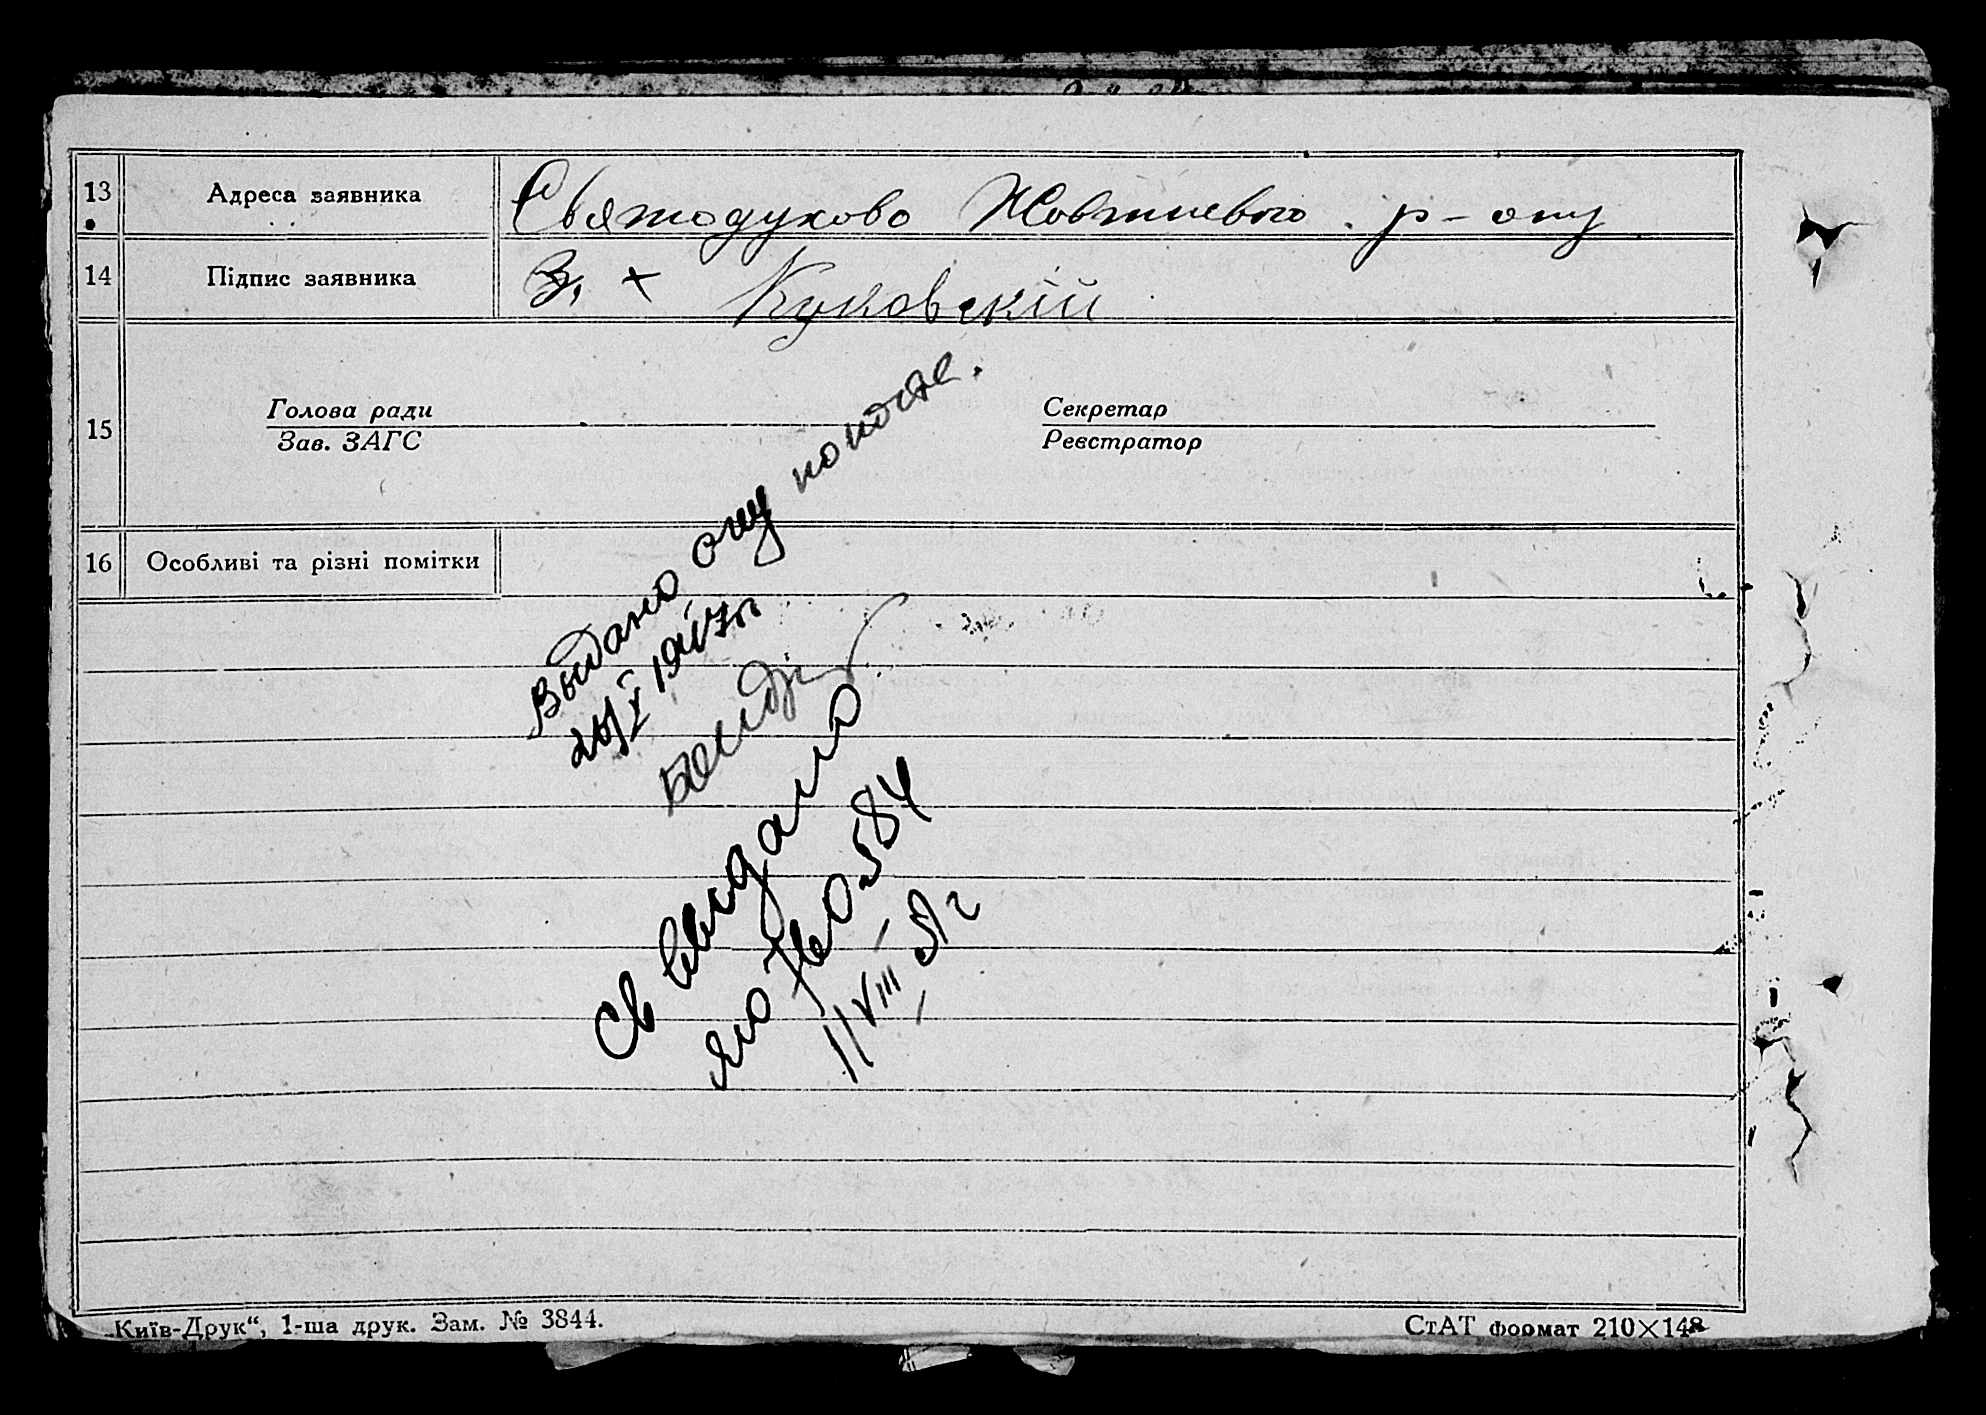 13 Адреса заявника Святодухово Жовтневого р-ону
14 Підпис заявника З, + Куковскій
15
Голова ради
Зав. ЗАГС
Секретар
Реєстратор
16 Особливі та різні помітки
Выдано
Св выдано
584
11 VIII 51 г
„Київ-Друк“, 1-ша друк. Зам. № 3844.
СтАТ формат 210×148